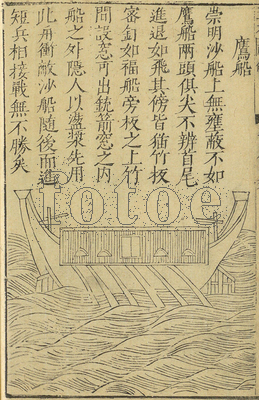 鷹船
崇明沙船上無壅蔽不如
鷹船兩頭俱尖不辨首尾
進退如飛其傍皆猫竹板
密釘如福船旁板之上竹
間設窓可出銃箭窓之内
船之外隠人以盪槳先用
此舟衝敵沙船隨後而進
短兵相接戰無不勝矣
fotoe